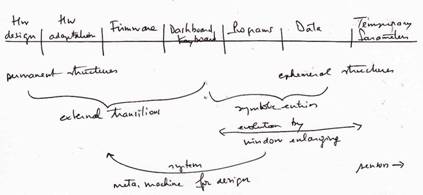 Hw design | Hw adaptation | Firmware | Dashboard, Keyboard | Programs | Data | Temporary Parameters
permanent structures ephemeral structures
external transitions symbolic entries
evolution by
window enlarging
system
meta machine for design
sensor →